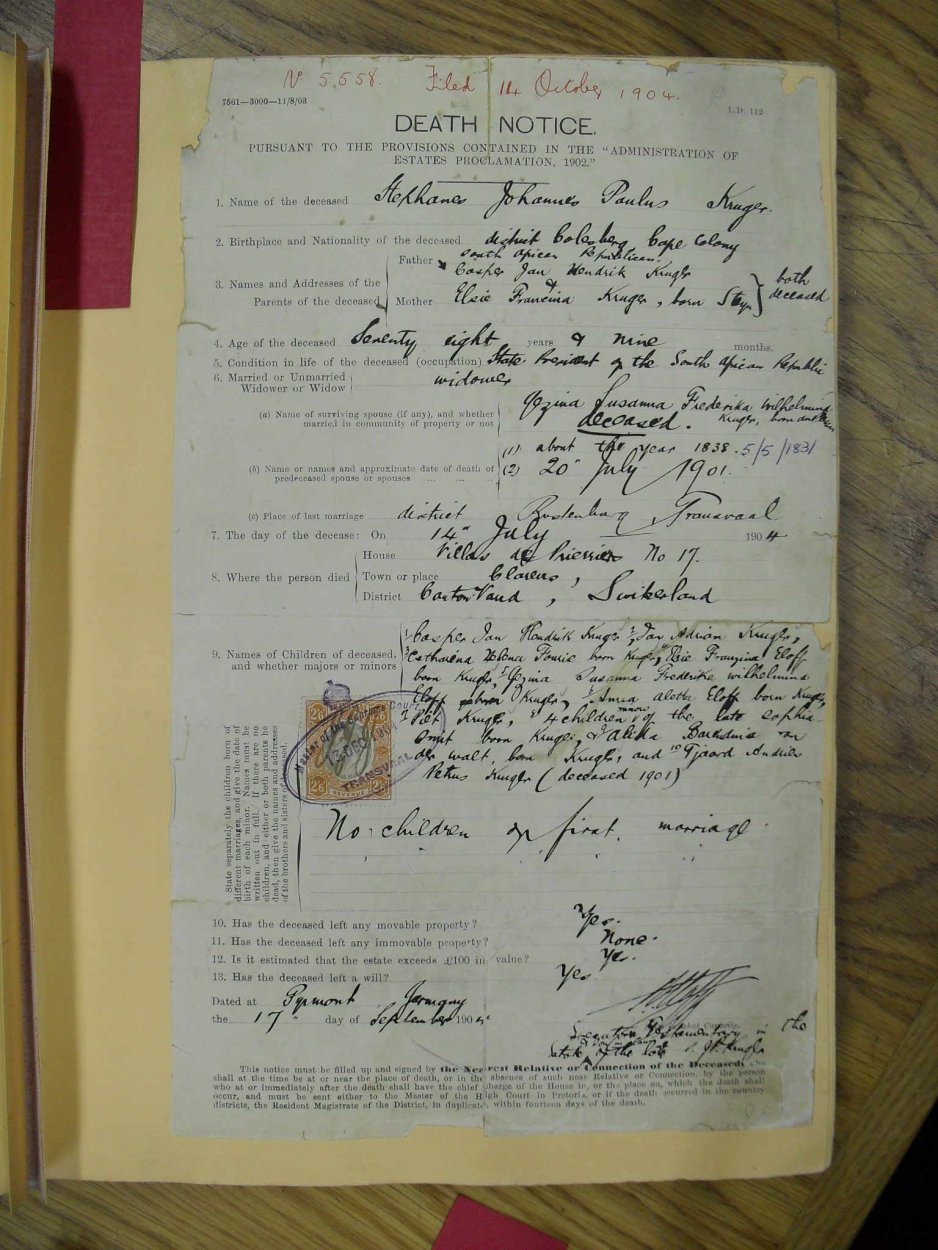 No 5.558. Filed 14 October 1904.
7561—3000—11/8/03
I.D. 112
DEATH NOTICE.
PURSUANT TO THE PROVISIONS CONTAINED IN THE "ADMINISTRATION OF
ESTATES PROCLAMATION, 1902."
1. Name of the deceased Stephanes Johannes Paulus Kruger.
2. Birthplace and Nationality of the deceased district Colesberg Cape Colony
South African Republican.
3. Names and Addresses of the Parents of the deceased
Father Casper Jan Hendrik Kruger
Mother Elsie Francina Kruger, born Steyn
both deceased
4. Age of the deceased Seventy eight years & nine months.
5. Condition in life of the deceased (occupation) State President of the South African Republic
6. Married or Unmarried widower
Widower or Widow
(a) Name of surviving spouse (if any), and whether Gezina Susanna Frederika Wilhelmina
married in community of property or not deceased. Kruger, born
(b) Name or names and approximate date of death of
predeceased spouse or spouses ... ... ...
(1) about the year 1838. 5/5/1831
(2) 20" July 1901.
(c) Place of last marriage district Rustenburg, Transvaal
7. The day of the decease: On 14" July 1904
8. Where the person died
House Villas No 17.
Town or place Clarens,
District Canton Vaud, Switzerland
9. Names of Children of deceased,
and whether majors or minors
Casper Jan Hendrik Kruger, Jan Adrian Kruger,
Catharina Helena Fourie born Kruger, Elsie Franzina Eloff
born Kruger, Gezina Susanna Frederika Wilhelmina
Eloff born Kruger, Anna Aletta Eloff born Kruger,
Piet Kruger, 4 children minors of the late Sophia
Smit born Kruger, van
der Walt, born Kruger, and 10 Tjaard Andries
Petrus Kruger (deceased 1901)
State separately the children born of
different marriages, and give the date of
birth of each minor. Names must be
written out in full. If there are no
children, and either or both parents be
dead, then give the names and addresses
of the brothers and sisters of deceased.
Master of the Supreme Court
13 DEC 1904
TRANSVAAL
2/6 2/6
2/6 REVENUE 2/6
No children of first marriage
10. Has the deceased left any movable property? Yes.
11. Has the deceased left any immovable property? None.
12. Is it estimated that the estate exceeds £100 in value? Yes.
13. Has the deceased left a will? Yes
Dated at Pyrmont Germany
the 17" day of September 1904
Executor Testamentary in the
Estate of the late S. J. P. Kruger
This notice must be filled up and signed by the Nearest Relative or Connection of the Deceased, who
shall at the time be at or near the place of death, or in the absence of such near Relative or Connection, by the person
who at or immediately after the death shall have the chief charge of the House in, or the place on, which the death shall
occur, and must be sent either to the Master of the High Court in Pretoria, or if the death occurred in the country
districts, the Resident Magistrate of the District, in duplicate, within fourteen days of the death.